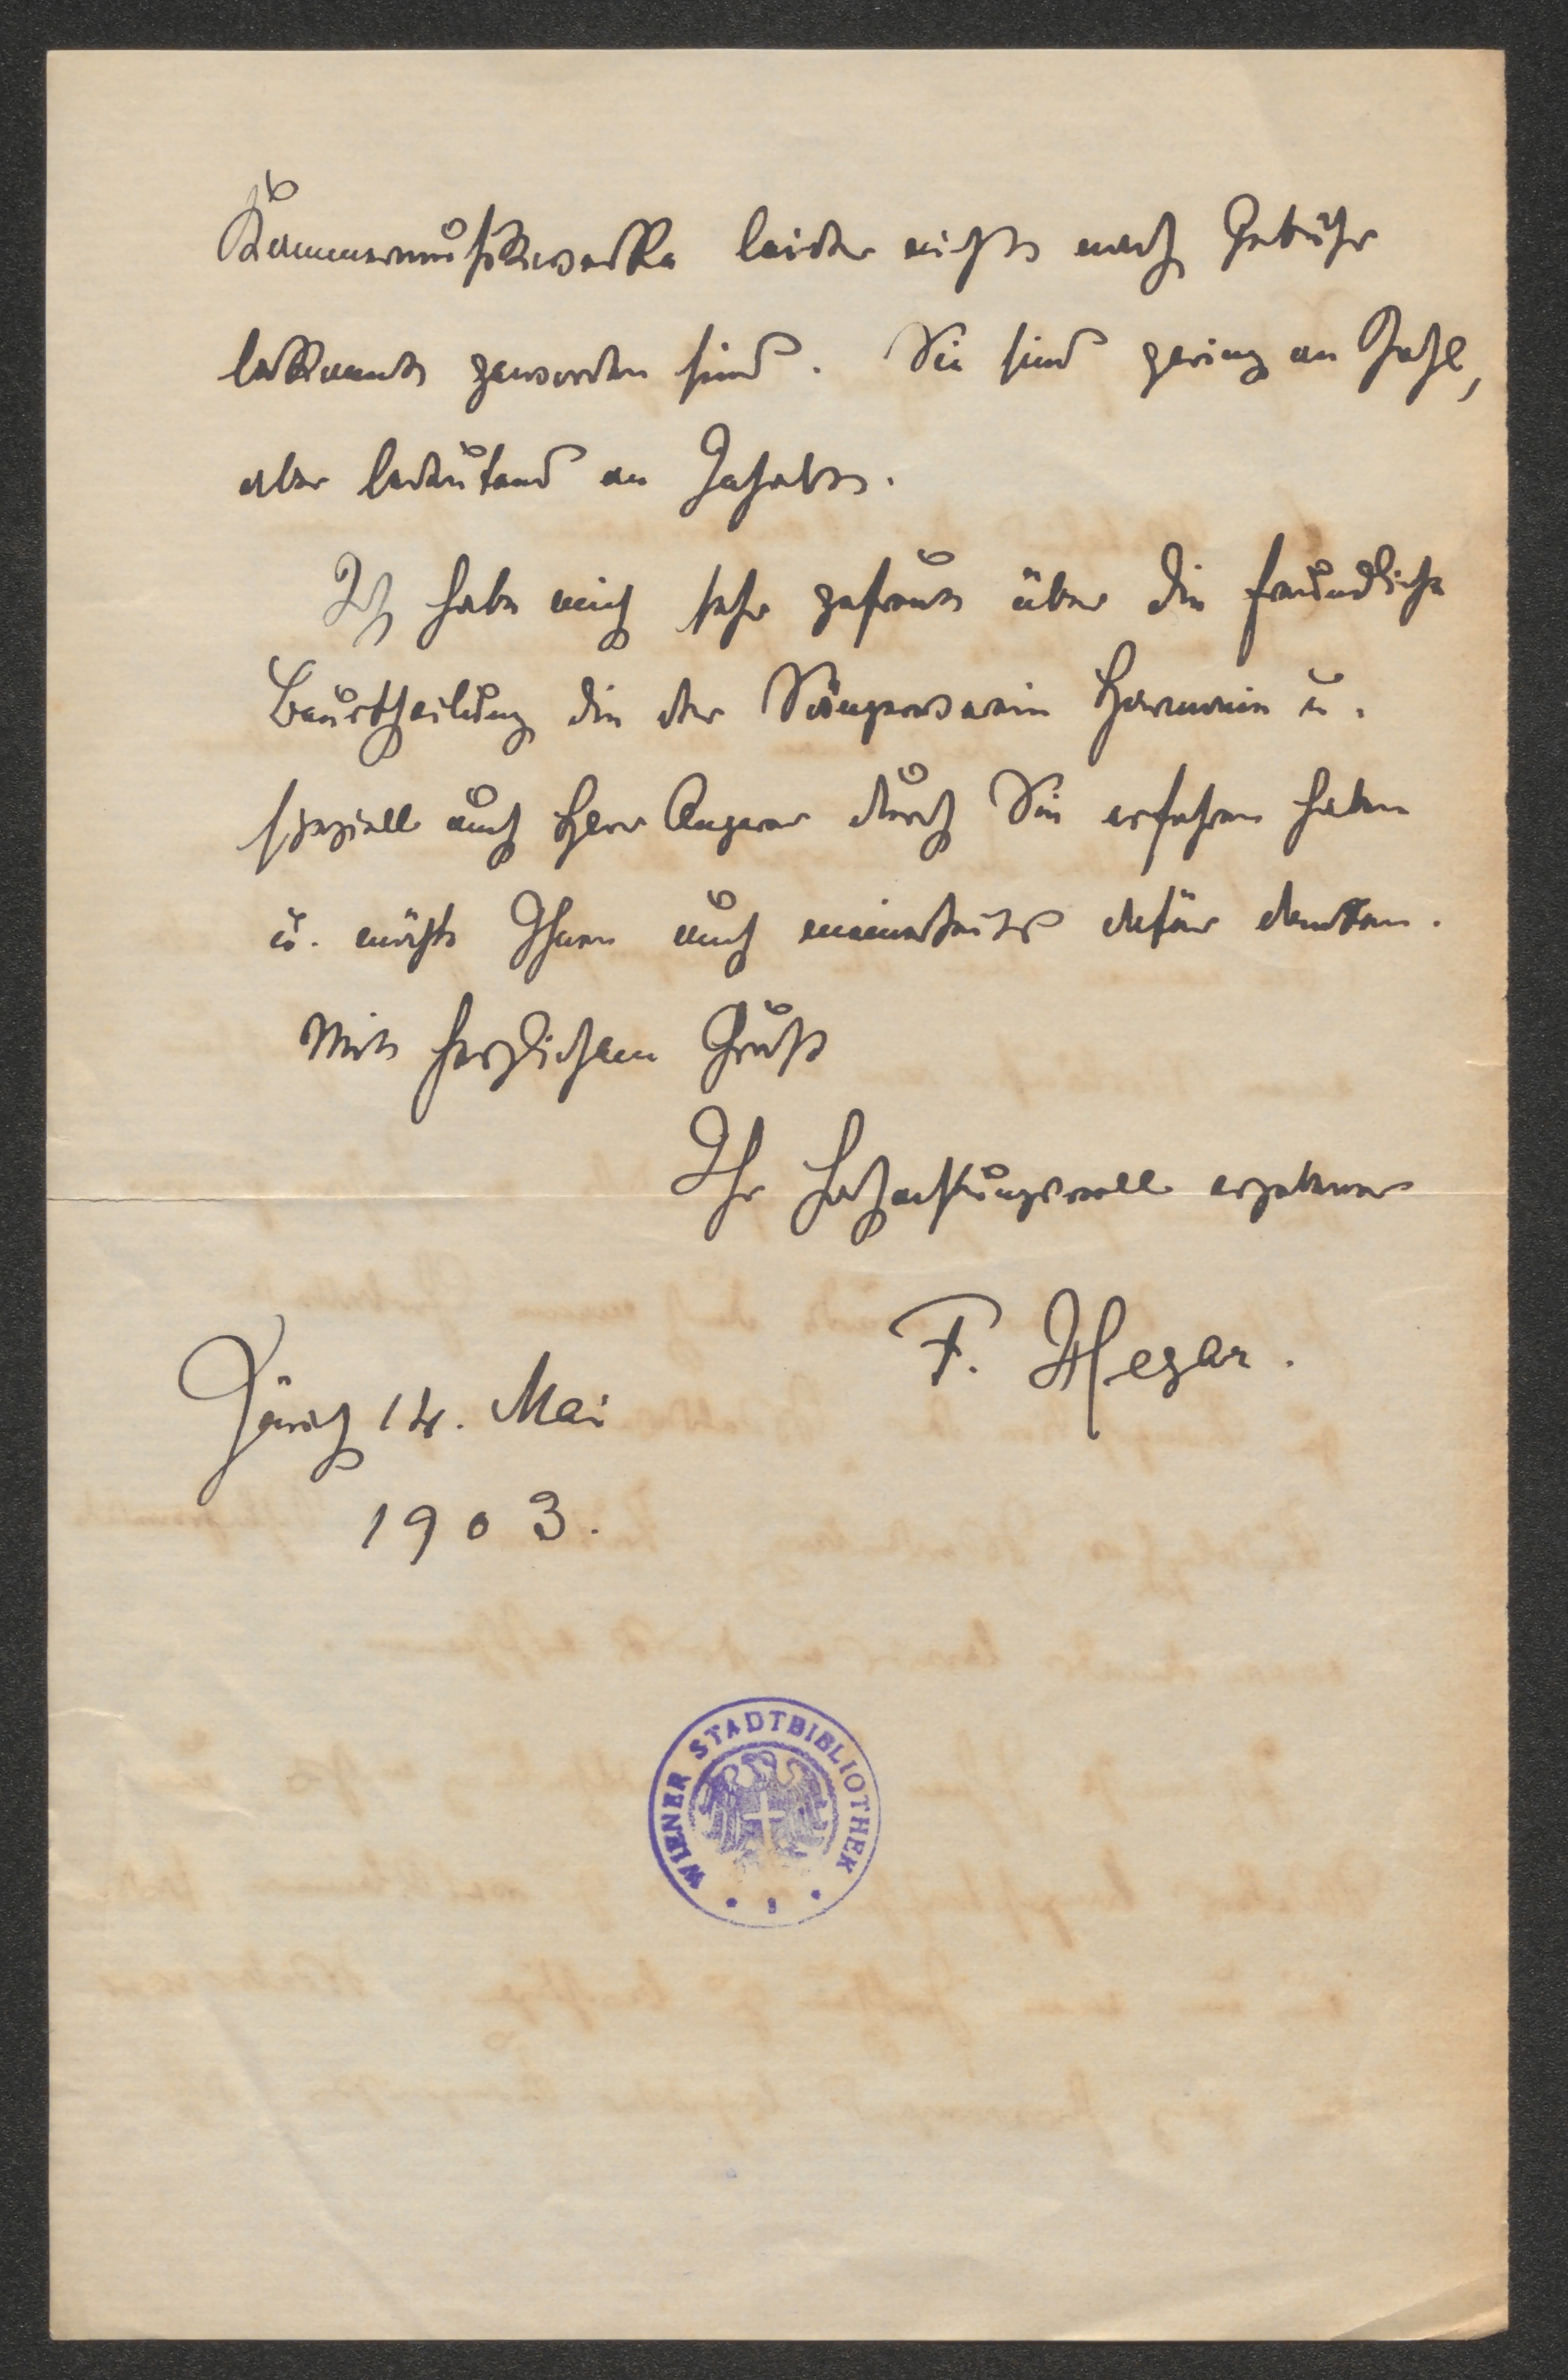 Kammermusikwerke leider nicht nach Gebühr
bekannt geworden sind. Sie sind gering an Zahl,
aber bedeutend an Inhalt.
Ich habe mich sehr gefreut über die freundliche
Beurtheilung die der Sängerverein Harmonie u.
speziell auch Herr Angerer durch Sie erfahren haben
u. möchte Ihnen auch meinerseits dafür danken.
Mit herzlichem Gruß
Ihr hochachtungsvoll ergebener
F. Hegar.
Zürich 14. Mai
1903.
WIENER STADTBIBLIOTHEK